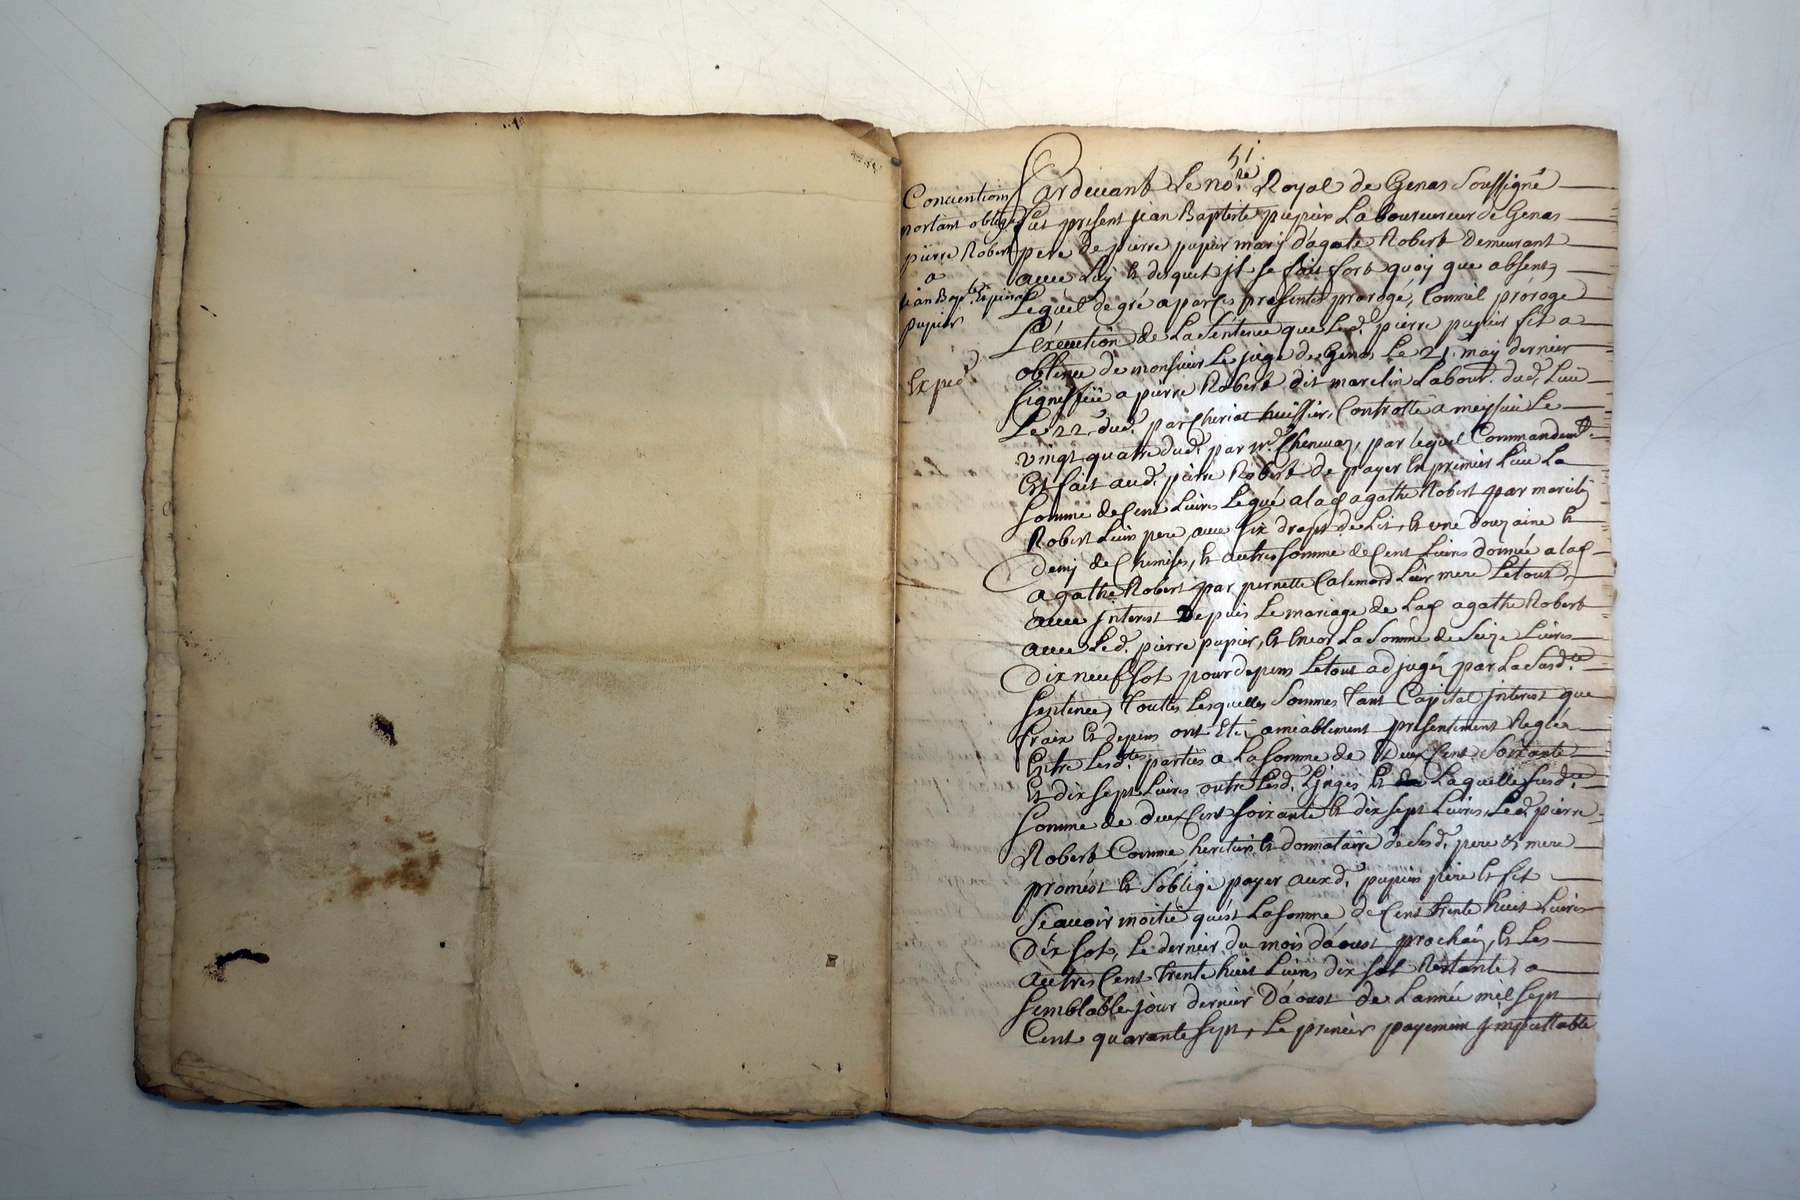 51.
Conventions
portant oblige
pierre Robert
a
jean Bapte. & pierre
pupier
Exped
Pardevant Le nore. Royal de Genas Soussigné
fut present jean Baptiste pupier Laboureureur de Genas
pere de pierre pupier mary d'agate Robert demeurant
avec Luy & duquel jl se fait fort quoy que absent,
Lequel de gré a par Ces presentes prorogé, Comme il proroge
L'execution de La Sentence que Led. pierre pupier fit a
obtenue de monsieur Le juge de Genas Le 21. may dernier
signiffiée a pierre Robert dit marclin Labour. dud. Lieu
Le 22. dud. par Cheriat huissier, Controllé a meysieu Le
vingt quatre dud. par mr. Chenevaz, par lequel Commandemt.
Est fait aud. pierre Robert de payer En premier Lieu La
somme de Cent Livres Legué a lad. agathe Robert par
Robert Leur pere, avec six draps de Lit, & une douzaine &
demy de Chemises, & autres somme de Cent Livres donnée a lad.
agathe Robert par pernette Calemard Leur mere Le tout
avec jnterest Depuis Le mariage de Lad. agathe Robert
avec Led. pierre pupier, & Encor La Somme de Seize Livres
Dix neuf sol pour depens Le tout adjugés par La Susdte.
Sentence, Toutes Lesquelles Sommes tant Capital jnterest que
fraix & depens ont Eté amiablement presentement Reglés
Entre Lesdtes. parties a La somme de Deux Cent Soixante
& dix sept Livres outre Lesd. Linges & Laquelle susdte.
somme de deux Cent soixante & dix sept Livres, Led. pierre
Robert Comme heritier & donnataire de Sesd. pere & mere
promest & s'oblige payer auxd. pupiers pere & fit
Scavoir moitié qu'est La somme de Cent trente huit Livres
Dix sols, Le dernier du mois d'aoust prochain, & Les
autres Cent trente huit Livres dix sol Restante, a
semblable jour dernier D'aoust de L'année mil sept
Cent quarante sept, Le premier payement jmputtable